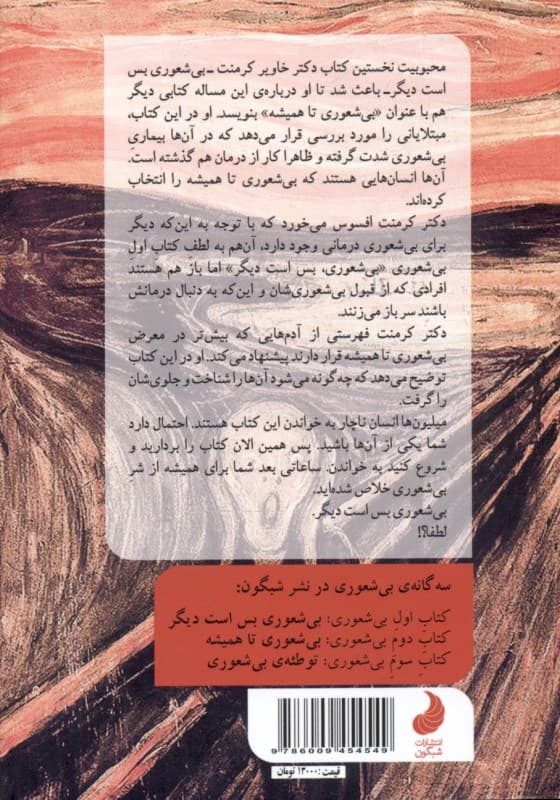 محبوبیت نخستین کتاب دکتر خاویر کرمنت ـ بی‌شعوری بس
است دیگرـ باعث شد تا او درباره‌ی این مساله کتابی دیگر
هم با عنوان «بی‌شعوری تا همیشه» بنویسد. او در این کتاب،
مبتلایانی را مورد بررسی قرار می‌دهد که در آن‌ها بیماریِ
بی‌شعوری شدت گرفته و ظاهرا کار از درمان هم گذشته است.
آن‌ها انسان‌هایی هستند که بی‌شعوری تا همیشه را انتخاب
کرده‌اند.
دکتر کرمنت افسوس می‌خورد که با توجه به این‌که دیگر
برای بی‌شعوری درمانی وجود دارد، آن‌هم به لطفِ کتاب اولِ
بی‌شعوری «بی‌شعوری، بس است دیگر» اما باز هم هستند
افرادی که از قبول بی‌شعوری‌شان و این‌که به دنبال درمانش
باشند سر باز می‌زنند.
دکتر کرمنت فهرستی از آدم‌هایی که بیش‌تر در معرض
بی‌شعوری تا همیشه قرار دارند پیشنهاد می‌کند. او در این کتاب
توضیح می‌دهد که چه‌گونه می‌شود آن‌ها را شناخت و جلوی‌شان
را گرفت.
میلیون‌ها انسان ناچار به خواندن این کتاب هستند. احتمال دارد
شما یکی از آن‌ها باشید. پس همین الان کتاب را بردارید و
شروع کنید به خواندن. ساعاتی بعد شما برای همیشه از شرِ
بی‌شعوری خلاص شده‌اید.
بی‌شعوری بس است دیگر.
لطفا؟!
سه گانه‌ی بی‌شعوری در نشر شبگون:
کتاب اول بی‌شعوری: بی‌شعوری بس است دیگر
کتابِ دومِ بی‌شعوری: بی‌شعوری تا همیشه
کتابِ سومِ بی‌شعوری: توطئه‌ی بی‌شعوری
انتشارات
شبگون
9 786009 454549
قیمت: ۱۳۰۰۰ تومان